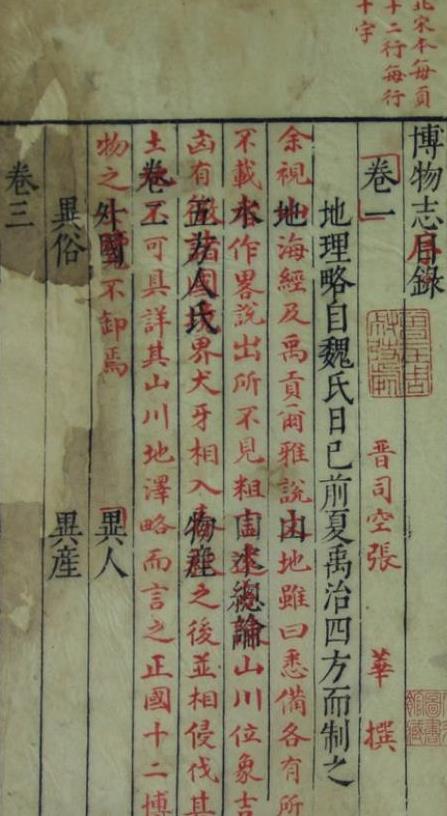 北宋本每頁
十二行每行
十字
博物志目錄
卷一 晋司空張 華 撰
地理略自魏氏日已前夏禹治四方而制之
地 山
余視海經及禹貢爾雅說地雖曰悉備各有所
水 總論
不載作畧說出所不見粗山川位象吉
五方人氏 物產
凶有國界犬牙相入之後並相侵伐其
卷二
土不可具詳其山川地澤略而言之正國十二博
外國 異人
物之不卸焉
異俗 異産
卷三